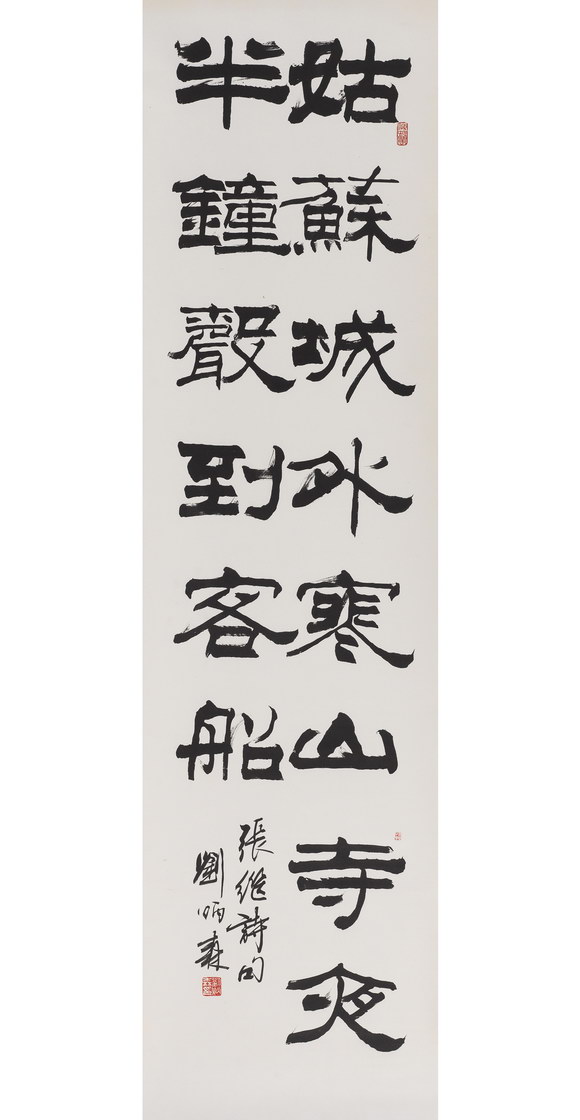 姑蘇城外寒山寺夜
半鐘聲到客船
張繼詩句
劉炳森